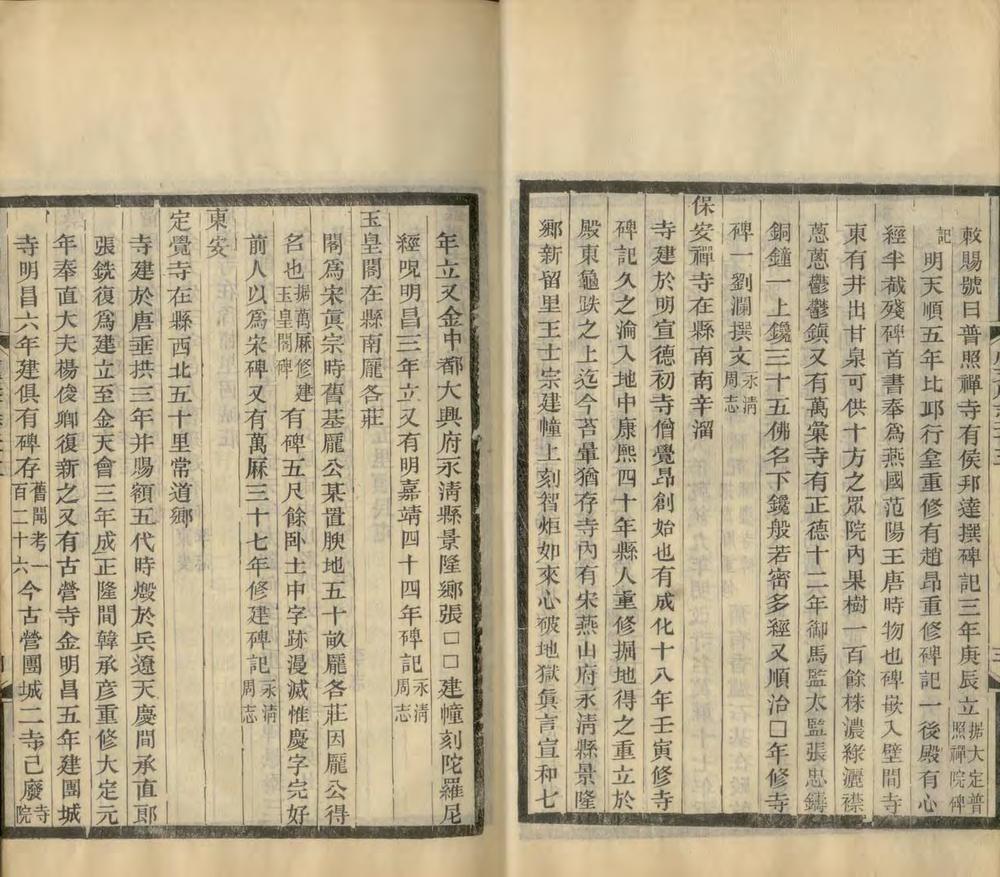 敕賜號曰普照禪寺有侯邦達撰碑記三年庚辰立据大定普照禪院碑
記明天順五年比邱行金重修有趙昂重修碑記一後殿有心
經半截殘碑首書奉爲燕國范陽王唐時物也碑嵌入壁間寺
東有井出甘泉可供十方之眾院內果樹一百餘株濃綠灑襟
蔥蔥鬱鬱鎭又有萬彙寺有正德十二年御馬監太監張忠鑄
銅鐘一上鑱三十五佛名下鑱般若密多經又順治□年修寺
碑一劉瀾撰文永清周志
保安禪寺在縣南南辛溜
寺建於明宣德初寺僧覺昂創始也有成化十八年壬寅修寺
碑記久之淪入地中康熙四十年縣人重修掘地得之重立於
殿東龜趺之上迄今苔暈猶存寺內有宋燕山府永清縣景隆
鄉新留里王士宗建幢上刻智炬如來心破地獄眞言宣和七
年立又金中都大興府永清縣景隆鄉張□□建幢刻陀羅尼
經呪明昌三年立又有明嘉靖四十四年碑記永清周志
玉皇閣在縣南龐各莊
閣爲宋眞宗時舊基龐公某置腴地五十畝龐各莊因龐公得
名也据萬厤修建玉皇閣碑有碑五尺餘卧土中字跡漫滅惟慶字完好
前人以爲宋碑又有萬厤三十七年修建碑記永清周志
東安
定覺寺在縣西北五十里常道鄉
寺建於唐垂拱三年并賜額五代時燬於兵遼天慶間承直郎
張銑復爲建立至金天會三年成正隆間韓承彥重修大定元
年奉直大夫楊俊卿復新之又有古營寺金明昌五年建團城
寺明昌六年建俱有碑存舊聞考一百二十六今古營團城二寺已廢寺院